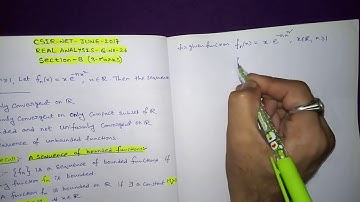 CSIR-NET-JUNE-2017
REAL ANALYSIS-Q.NO-26
Section-B (3-Marks)
≥1, Let fₙ(x) = x e^{-nx²}, x∈R. Then the sequence
only Convergent on R
Convergent on only Compact subset of R
bounded and not uniformly Convergent on R
sequence of unbounded functions
A sequence of bounded functions
{fₙ} is a sequence of bounded functions if
fₙ is bounded.
A function fₙ is bounded on R if ∃ a constant
x∈R
for given function fₙ(x) = x e^{-nx²}, x∈R, n≥1